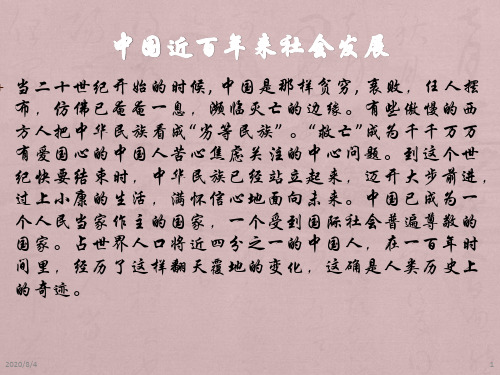 中国近百年来社会发展
当二十世纪开始的时候,中国是那样贫穷,衰败,任人摆
布,仿佛已奄奄一息,濒临灭亡的边缘。有些傲慢的西
方人把中华民族看成“劣等民族”。“救亡”成为千千万万
有爱国心的中国人苦心焦虑关注的中心问题。到这个世
纪快要结束时,中华民族已经站立起来,迈开大步前进,
过上小康的生活,满怀信心地面向未来。中国已成为一
个人民当家作主的国家,一个受到国际社会普遍尊敬的
国家。占世界人口将近四分之一的中国人,在一百年时
间里,经历了这样翻天覆地的变化,这确是人类历史上
的奇迹。
2020/8/4
1